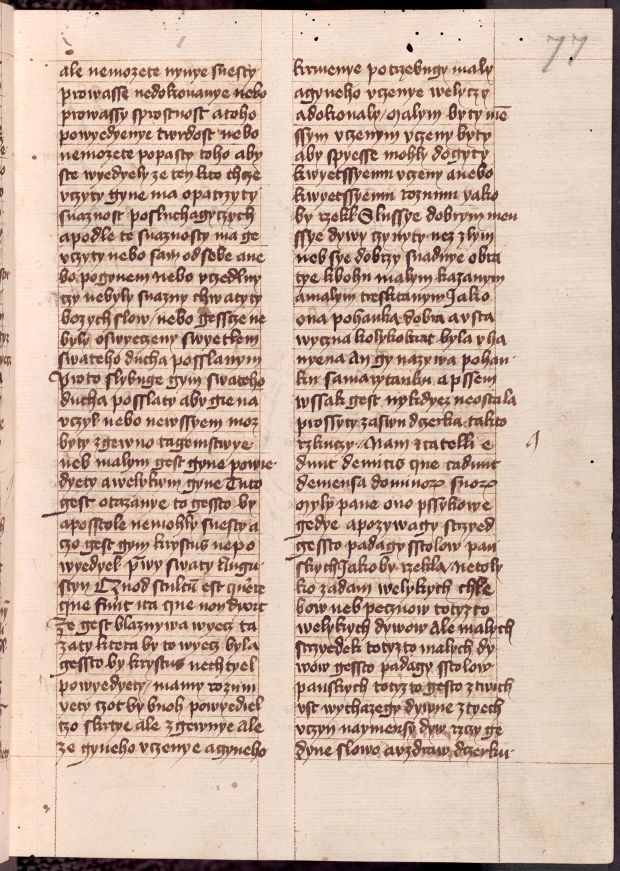 77
ale nemozete nynye snesty
prowasse nedokonanye nebo
prowassy sprostnost atoho
powyedyenye twrdost nebo
nemozete popasty toho aby
ste wyedyely ze ten kto chcze
vczyty gyne ma opatrzyty
snaznost posluchagyczych
apodle te snaznosty ma ge
vczyty nebo sam od sebe ane
bo pogynem nebo vczedlny
czy nebyly snazny chwatyty
bozych slow nebo gesscze ne
byly oswyeczeny swyetlem
swateho ducha posslanym
Proto slybuge gym swateho
ducha posslaty aby gie na
vczyl nebo newssyem moz
byty zgewno tagemstwye
neb malym gest gyne powye
dyety awelykym gyne Tuto
gest otazanye to gessto by
aposstole nemohly snesty a
czo gest gym krystus nepo
wyedyel prwy swaty Augu
styn Quod stultum est querere
que sunt ita que non dixit
Ze gest blaznywa wyecz ta
zaty ktera by to wyecz byla
gessto by krystus nechtyel
powyedyety mamy rozum
yety czoz by buoh powyediel
czo skrtye ale zgewnye Ale
ze gyneho vczenye agyneho
krmenye potrzebugy maly
agyneho vczenye welyczy
adokonaly Malym byty me
ssym vczenym vczeny byty
aby spyesse mohly dogyty
kwyetssyemu vczeny anebo
kwyetssyemu rozumu yako
by rzekl Slussye dobrym men
ssye dywy czynyty nez zlym
neb sye dobrzy snadnye obra
tye kbohu malym kazanym
amalym treskctanym Jako
ona pohanka dobra avsta
wyczna kolykokrat byla yha
nyena An gy nazywa pohan
ku samawytanku apssem
wssak gest nykdyez neostala
prossyty zaswu dzerku takto
rzkuczy Nam et catelli e
dunt de micis que cadunt
de mensa dominorum suorum
Myly pane ono pssykowe
gedye apozywagy strzyed
gessto padagy sstolow pan
skych Jako by rzekla Netoly
ko zadam welykych chle
bow neb pecznow totyzto
welykych dywow Ale malych
strzyedek totyzto malych dy
wow gessto padagy sstolow
panskych totyzto gesto ztwich
vst wychazegy dywne ztyech
vczyn naymensy dyw rzcy ge
dyne slowo avzdraw dzerku